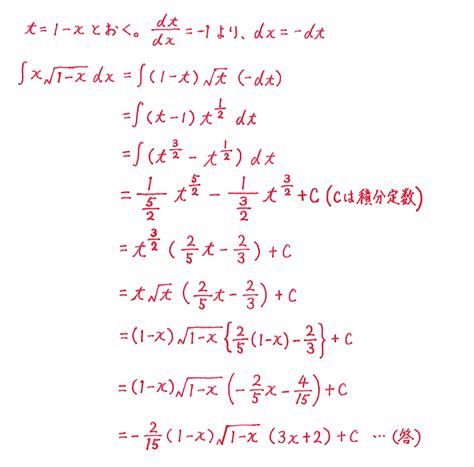 t=1-xとおく。dt/dx=-1より、dx=-dt
∫x√(1-x) dx = ∫(1-t)√t (-dt)
=∫(t-1) t^(1/2) dt
=∫(t^(3/2) - t^(1/2)) dt
= 1/(5/2) t^(5/2) - 1/(3/2) t^(3/2) + C (Cは積分定数)
= t^(3/2) (2/5 t - 2/3) + C
= t√t (2/5 t - 2/3) + C
= (1-x)√(1-x) {2/5 (1-x) - 2/3} + C
= (1-x)√(1-x) (-2/5 x - 4/15) + C
= -2/15 (1-x)√(1-x) (3x+2) + C …(答)